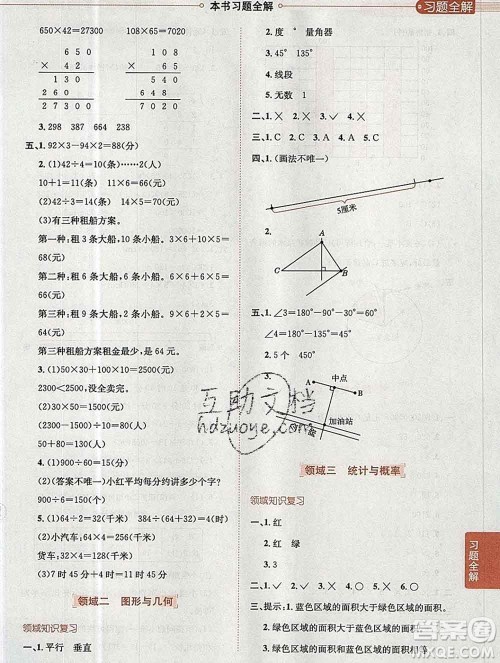 本书习题全解
习题全解
650×42=27300 108×65=7020
6 5 0
× 4 2
1 3 0
2 6 0
2 7 3 0 0
1 0 8
× 6 5
5 4 0
6 4 8
7 0 2 0
3. 298 387 664 238
五、1. 92×3-94×2=88(分)
2. (1)42÷4=10(条)……2(人)
10+1=11(条) 11×6=66(元)
(2)42÷3=14(条) 14×5=70(元)
(3)有三种租船方案。
第一种:租 3 条大船,10 条小船。3×6+10×5=
68(元)
第二种:租 6 条大船,6 条小船。6×6+6×5=
66(元)
第三种:租 9 条大船,2 条小船。9×6+2×5=
64(元)
第三种租船方案租金最少,是 64 元。
3. (1)50×30+50×20=2500(元)
2300<2500,没全卖完。
(2)30×50=1500(花)
(2300-1500)÷(50-40)=80(花)
50+80=130(花)
4. (1)900÷60=15(分)
(2)(答案不唯一)小红平均每分约讲多少个字?
900÷15=60(个)
5. (1)64÷2=32(千米)
(2)小汽车:64÷1=64(千米)
货车:64÷2=32(千米)
(3)7 时 45 分+1 时=8 时 45 分
领域二 图形与几何
领域知识复习
一、1. 平行 垂直
2. 度 ° 量角器
3. 45° 135°
4. 线段
5. 无数 1
二、1. × 2. × 3. ✓ 4. ×
三、1. C 2. A 3. B
四、1. (画法不唯一)
5厘米
2.
A
C
B
五、1. ∠3=180°-90°-30°=60°
∠4=180°-30°=150°
2. 5 个 450°
3.
A
中点
B
加油站
公路
领域三 统计与概率
领域知识复习
一、1. 红
2. 红 绿
3. 3
二、1. ✓ 2. × 3. ✓
三、1. 提示:蓝色区域的面积大于绿色区域的面积。
2. 绿色区域的面积大于蓝色区域的面积。
3. 绿色区域的面积和蓝色区域的面积相等。
习题全解
互助文档
hdzuoye.com
作业帮
MXQE.COM